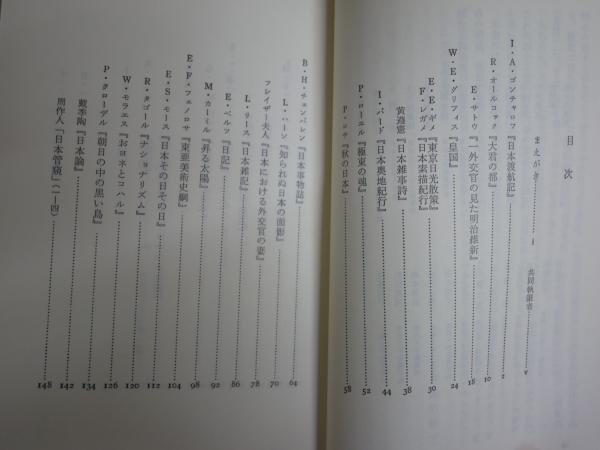 目次
まえがき……i
共同執筆者……v
I・A・ゴンチャロフ『日本渡航記』……2
R・オールコック『大君の都』……10
E・サトウ『一外交官の見た明治維新』……18
W・E・グリフィス『皇国』……24
E・E・ギメ『東京日光散策』
F・レガメ『日本素描紀行』……30
黄遵憲『日本雑事詩』……38
I・バード『日本奥地紀行』……44
P・ローエル『極東の魂』……52
P・ロチ『秋の日本』……58
B・H・チェンバレン『日本事物誌』……64
L・ハーン『知られぬ日本の面影』……70
フレイザー夫人『日本における外交官の妻』……78
L・リース『日本雑記』……86
E・ベルツ『日記』……92
M・カーミル『昇る太陽』……98
E・F・フェノロサ『東亜美術史綱』……104
E・S・モース『日本その日その日』……112
R・タゴール『ナショナリズム』……120
W・モラエス『おヨネとコハル』……126
P・クローデル『朝日の中の黒い鳥』……134
戴季陶『日本論』……142
周作人「日本管窺」（一-四）……148